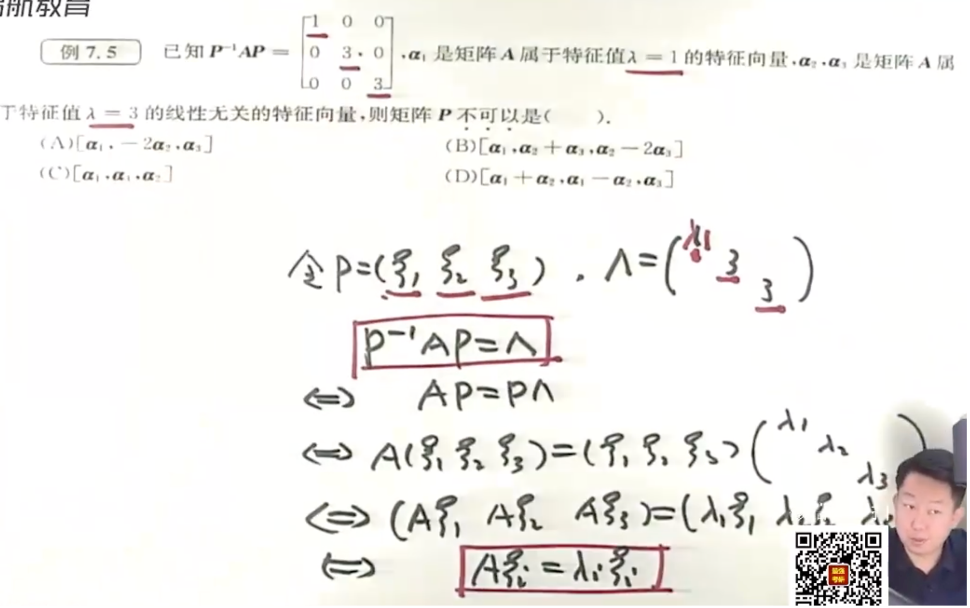 航教育
例 7.5 已知 P⁻¹AP = [1 0 0; 0 3 0; 0 0 3], α₁ 是矩阵 A 属于特征值 λ = 1 的特征向量, α₂, α₃ 是矩阵 A 属
于特征值 λ = 3 的线性无关的特征向量, 则矩阵 P 不可以是( ).
(A)[α₁, −2α₂, α₃] (B)[α₁, α₂ + α₃, α₂ − 2α₃]
(C)[α₁, α₃, α₂] (D)[α₁ + α₂, α₁ − α₂, α₃]
令 P=(ξ₁ ξ₂ ξ₃), Λ=(λ1 3 3)
P⁻¹AP=Λ
⇔ AP=PΛ
⇔ A(ξ₁ ξ₂ ξ₃)=(ξ₁ ξ₂ ξ₃)(λ₁ λ₂ λ₃
⇔ (Aξ₁ Aξ₂ Aξ₃)=(λ₁ξ₁
⇔ Aξᵢ=λᵢξᵢ